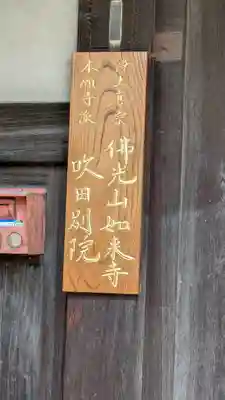 浄土真宗
本願寺派
佛光山如来寺
吹田別院